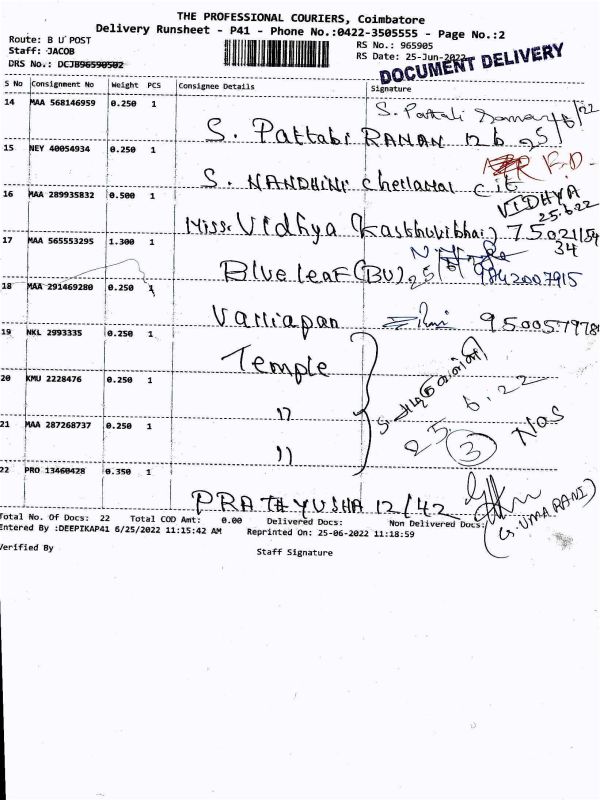 THE PROFESSIONAL COURIERS, Coimbatore
Delivery Runsheet - P41 - Phone No.:0422-3505555 - Page No.:2
Route: B U POST
RS No.: 965905
Staff: JACOB
RS Date: 25-Jun-2022
DRS No.: DCJB96590502
DOCUMENT DELIVERY
S No Consignment No Weight PCS Consignee Details Signature
14 MAA 568146959 0.250 1
S. Pattabi RAMAN 12 b 25/6/22
15 NEY 40054934 0.250 1
S. NANDHINI chellamal cit
16 MAA 289935832 0.500 1
VIDHYA
25.6.22
Miss. Vidhya (Kasthuribhai) 75021154
34
17 MAA 565553295 1.300 1
Blue leaf (BU) 25/6 9842007915
18 MAA 291469280 0.250 1
Valliapan 9500579784
19 NKL 2993335 0.250 1
Temple
20 KMU 2228476 0.250 1
25.6.22
11
21 MAA 287268737 0.250 1
3 Nos
11
22 PRO 13460428 0.350 1
PRATHYUSHA 12/42
(G. UMA RANI)
Total No. Of Docs: 22 Total COD Amt: 0.00 Delivered Docs: Non Delivered Docs:
Entered By :DEEPIKAP41 6/25/2022 11:15:42 AM Reprinted On: 25-06-2022 11:18:59
Verified By
Staff Signature